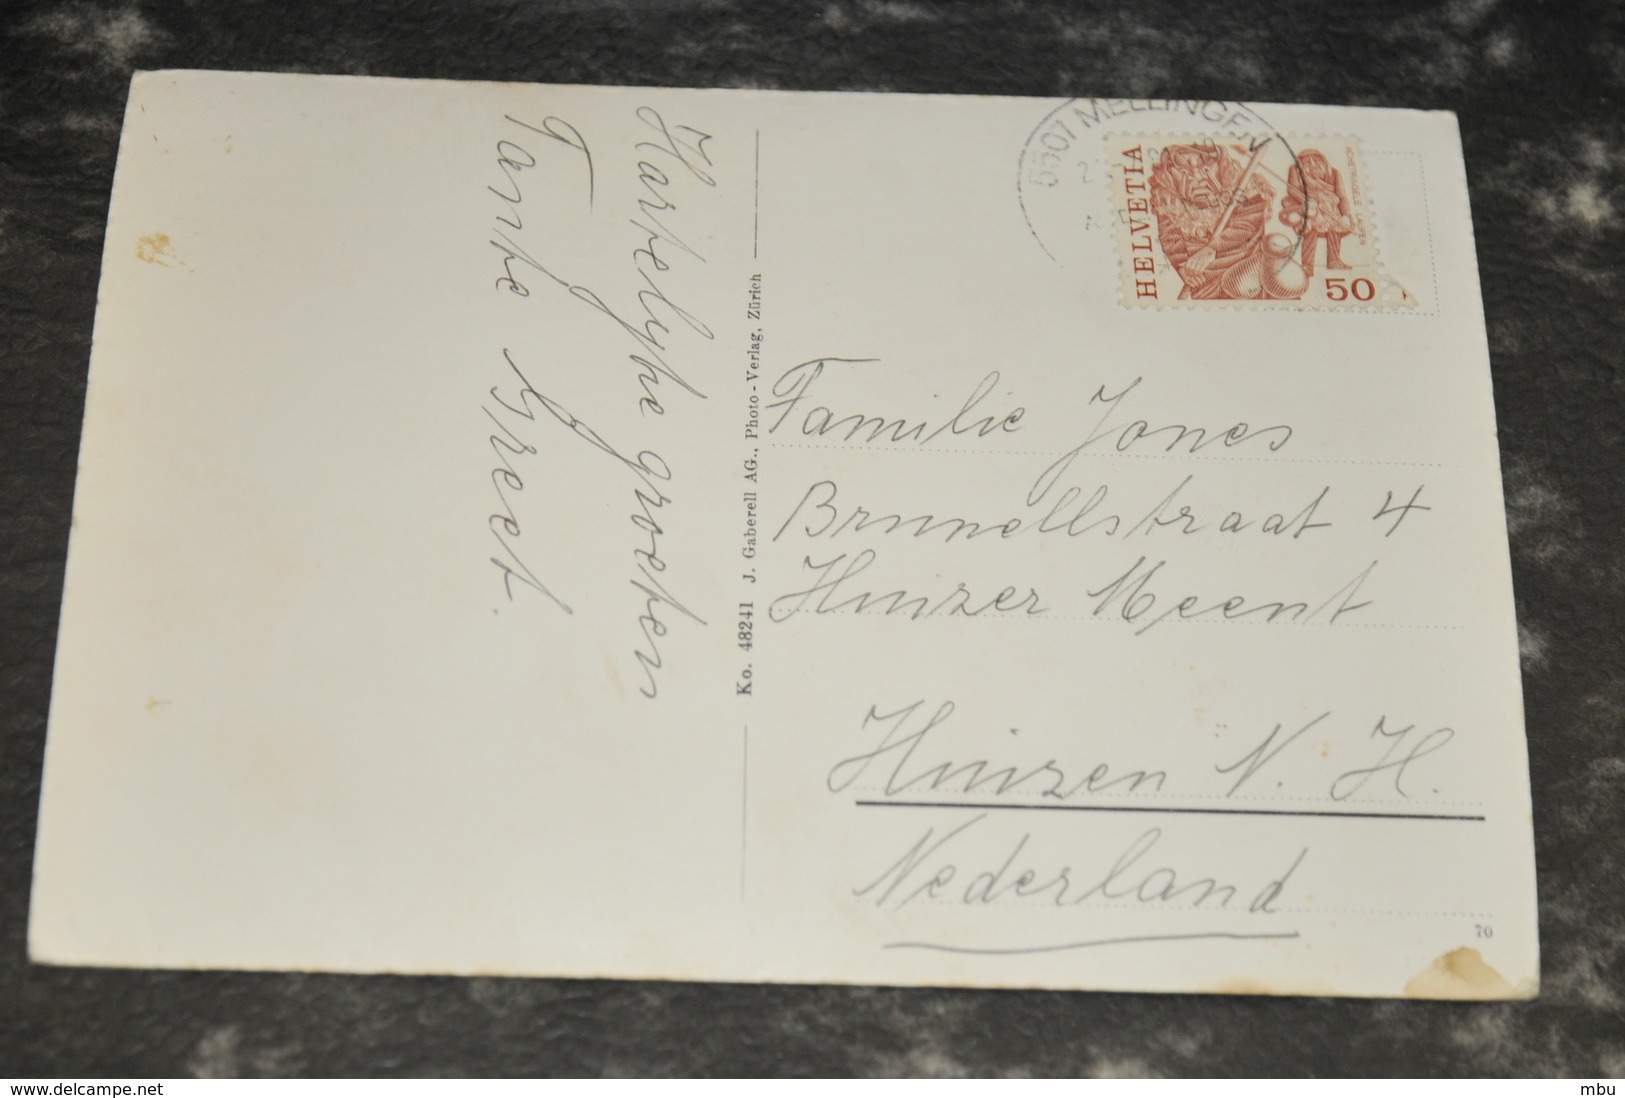 Hartelyke groeten
Tante Greet.
Ko. 48241 J. Gaberell AG., Photo - Verlag, Zürich
MELLINGEN
HELVETIA
50
Familie Jones
Brunellstraat 4
Huizer Meent
Huizen N. H.
Nederland
70
www.delcampe.net
mbu